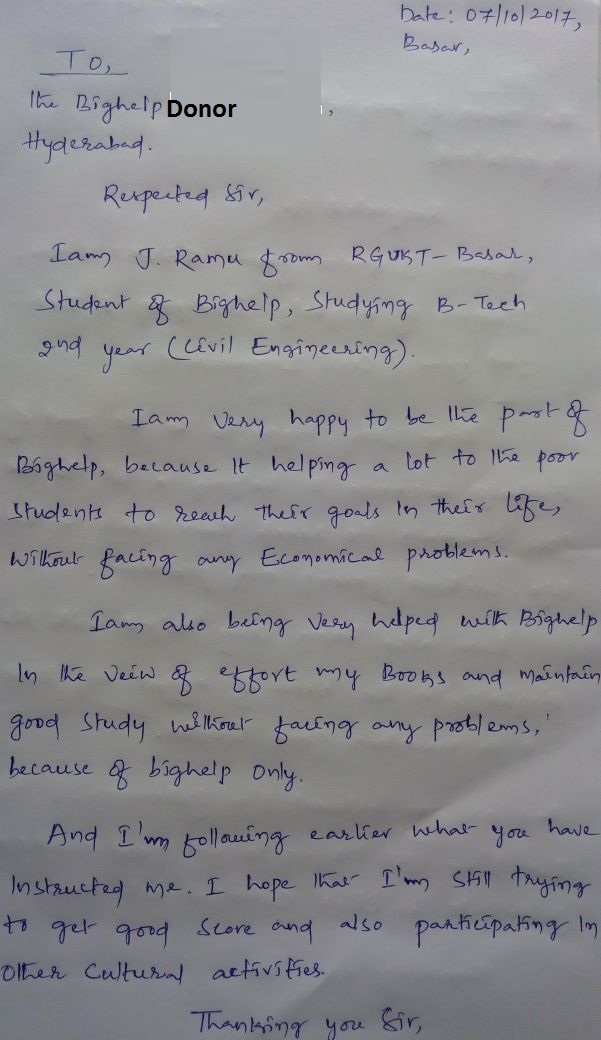 Date: 07/10/2017,
Basar,
To,
The Bighelp Donor ,
Hyderabad.
Respected Sir,
Iam J. Ramu from RGUKT-Basar,
Student of Bighelp, Studying B-Tech
2nd year (Civil Engineering).
Iam very happy to be the part of
Bighelp, because It helping a lot to the poor
Students to reach their goals In their life,
without facing any Economical problems.
Iam also being very helped with Bighelp
In the veiw of effort my Books and maintain
good Study without facing any problems,'
because of bighelp only.
And I'm following earlier what you have
Instructed me. I hope that I'm Still trying
to get good Score and also participating In
Other Cultural activities.
Thanking you Sir,